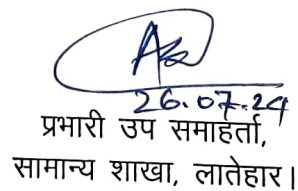 26.07.24
प्रभारी उप समाहर्ता,
सामान्य शाखा, लातेहार।